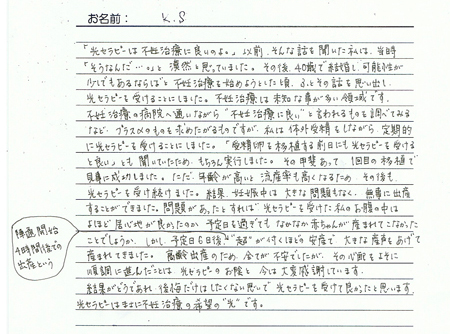 お名前： K.S
「光セラピーは不妊治療に良いのよ。」以前、そんな話を聞いた私は、当時
「そうなんだ…。」と漠然と思っていました。その後、40歳で結婚し、可能性が
少しでもあるならばと不妊治療を始めようとした頃、ふとその話を思い出し
光セラピーを受けることにしました。不妊治療は未知な事が多い領域です。
不妊治療の病院へ通いながら“不妊治療に良い”と言われるものを調べてみる
など、プラスαのものを求めたがるものですが、私は体外受精をしながら定期的
に光セラピーを受けることにしました。「受精卵を移植する前日にも光セラピーを受ける
と良い」とも聞いていたため、もちろん実行しました。その甲斐あって、1回目の移植で
見事に成功しました。ただ、年齢が高いと流産率も高くなるため、その後も
光セラピーを受け続けました。結果、妊娠中は大きな問題もなく、無事に出産
することができました。問題があったとすれば光セラピーを受けた私のお腹の中は
よほど居心地が良かったのか予定日を過ぎてもなかなか赤ちゃんが産まれてこなかった
ことでしょうか。しかし、予定日6日後、“超”が付くほどの安産で大きな産声をあげて
産まれてきました。高齢出産のため、全てが不安でしたが、その心配をよそに
順調に進んだことは光セラピーのお陰と今は大変感謝しています。
結果がどうであれ、後悔だけはしたくない思いで光セラピーを受けて良かったと思います。
光セラピーはまさに不妊治療の希望の“光”です。
陣痛開始
4時間後での
出産という